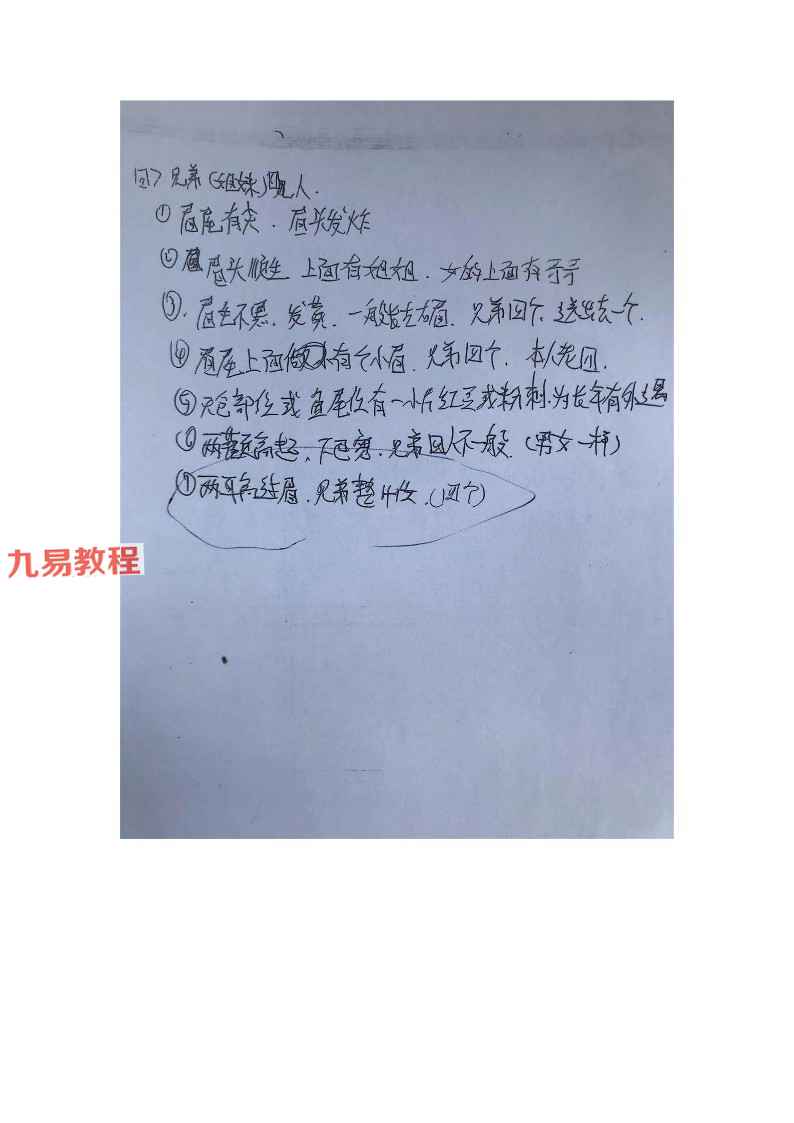 四〉兄弟(姐妹)四人.
① 眉尾有尖. 眉头发炸
② 眉头顺生 上面有姐姐. 女的上面有哥哥
③. 眉毛不黑. 发黄. 一般 眉. 兄弟四个. 送出去一个.
④ 眉尾上面 有个小眉. 兄弟四个. 本人老四.
⑤ 部位或鱼尾位有一小片红豆或粉刺.为长年有外遇
⑥ 两 高起. 下巴宽. 兄弟四人不一般. (男女一样)
⑦ 两耳高过眉. 兄弟 .(四个)
九易教程